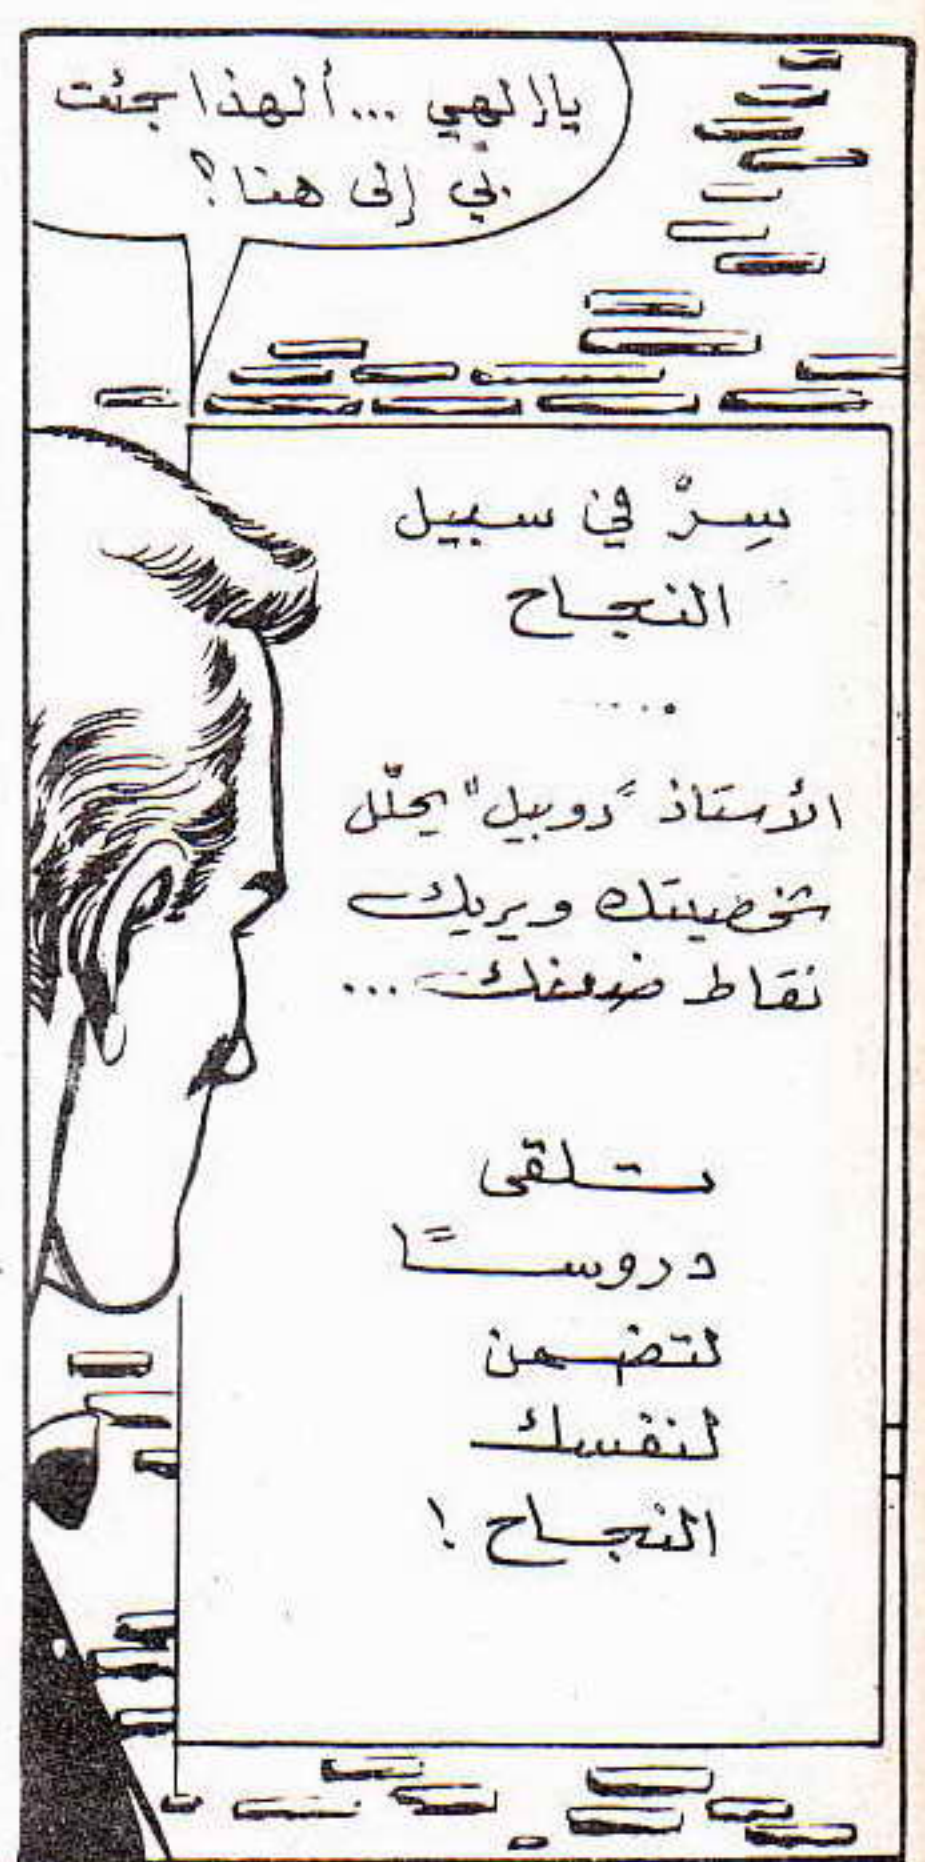 ياإلهي ... ألهذا جئت
بي إلى هنا؟
سِرّ في سبيل
النجاح
....
الأستاذ "دوبيل" يحلّل
شخصيتك ويريك
نقاط ضعفك ...
تلقى
دروسًا
لتضمن
لنفسك
النجاح!